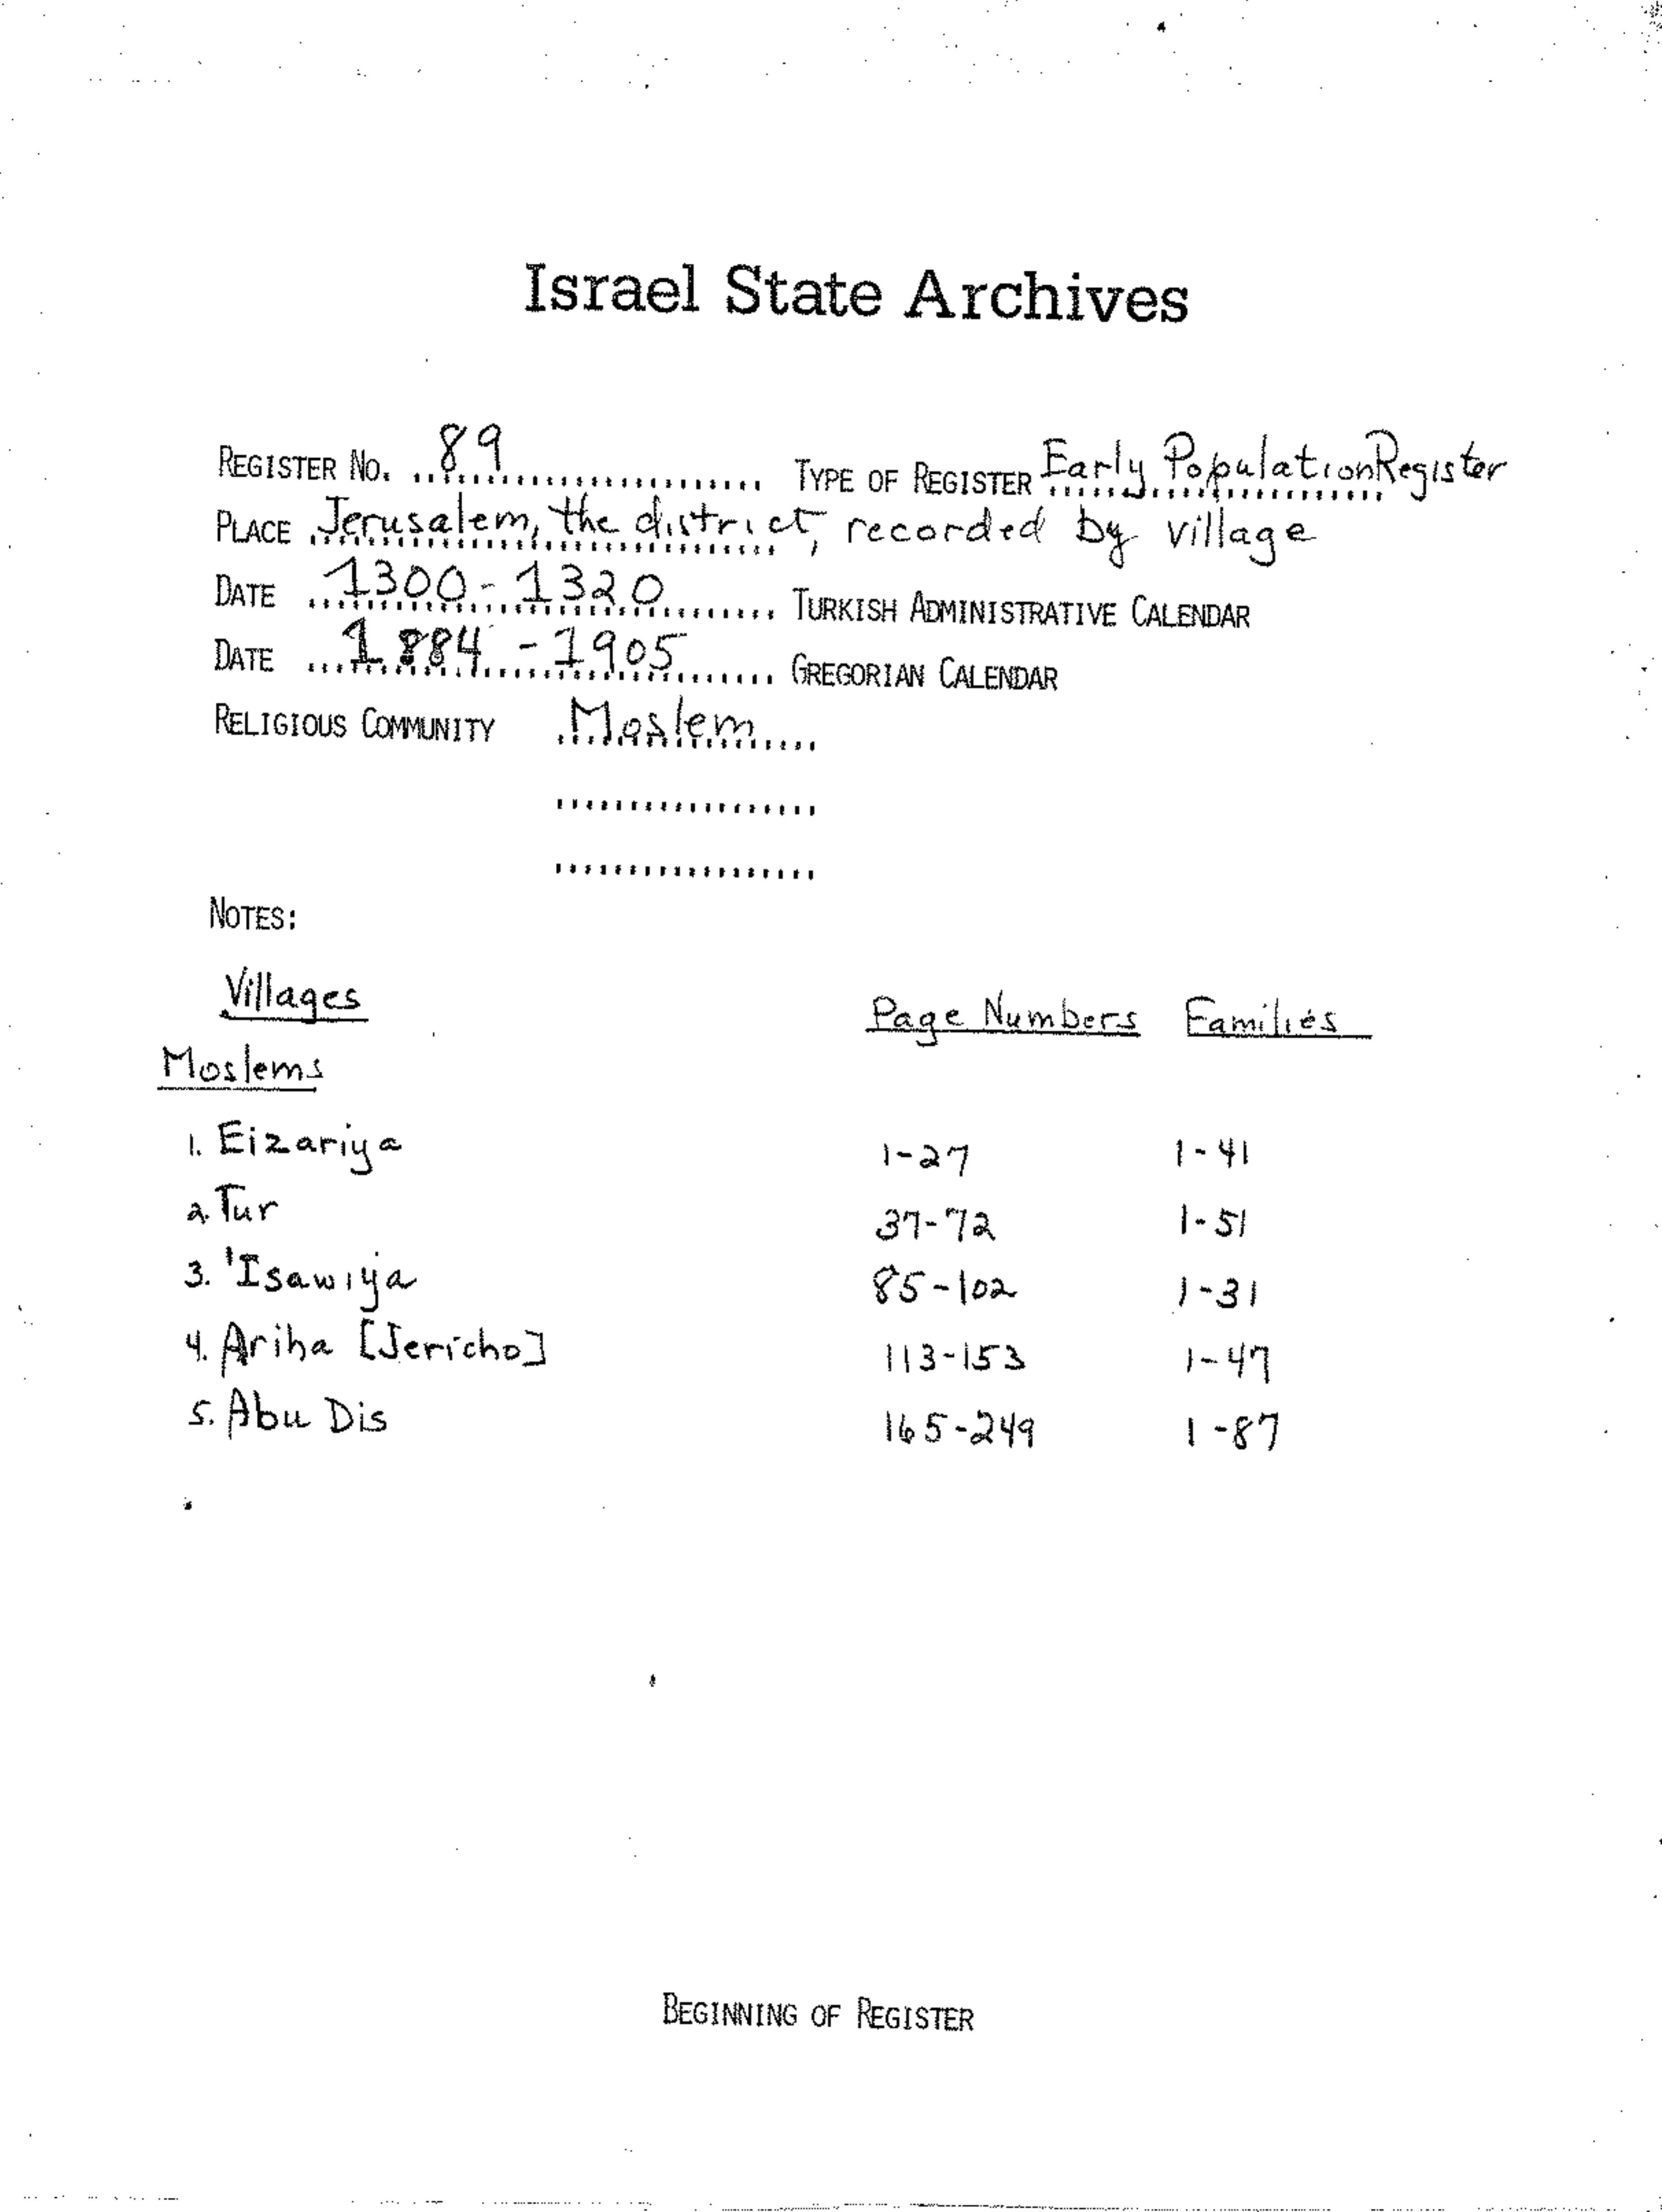 Israel State Archives
REGISTER NO. 89 TYPE OF REGISTER Early Population Register
PLACE Jerusalem, the district, recorded by village
DATE 1300-1320 TURKISH ADMINISTRATIVE CALENDAR
DATE 1884-1905 GREGORIAN CALENDAR
RELIGIOUS COMMUNITY Moslem
NOTES:
Villages Page Numbers Families
Moslems
1. Eizariya 1-27 1-41
2. Tur 37-72 1-51
3. 'Isawiya 85-102 1-31
4. Ariha [Jericho] 113-153 1-47
5. Abu Dis 165-249 1-87
BEGINNING OF REGISTER